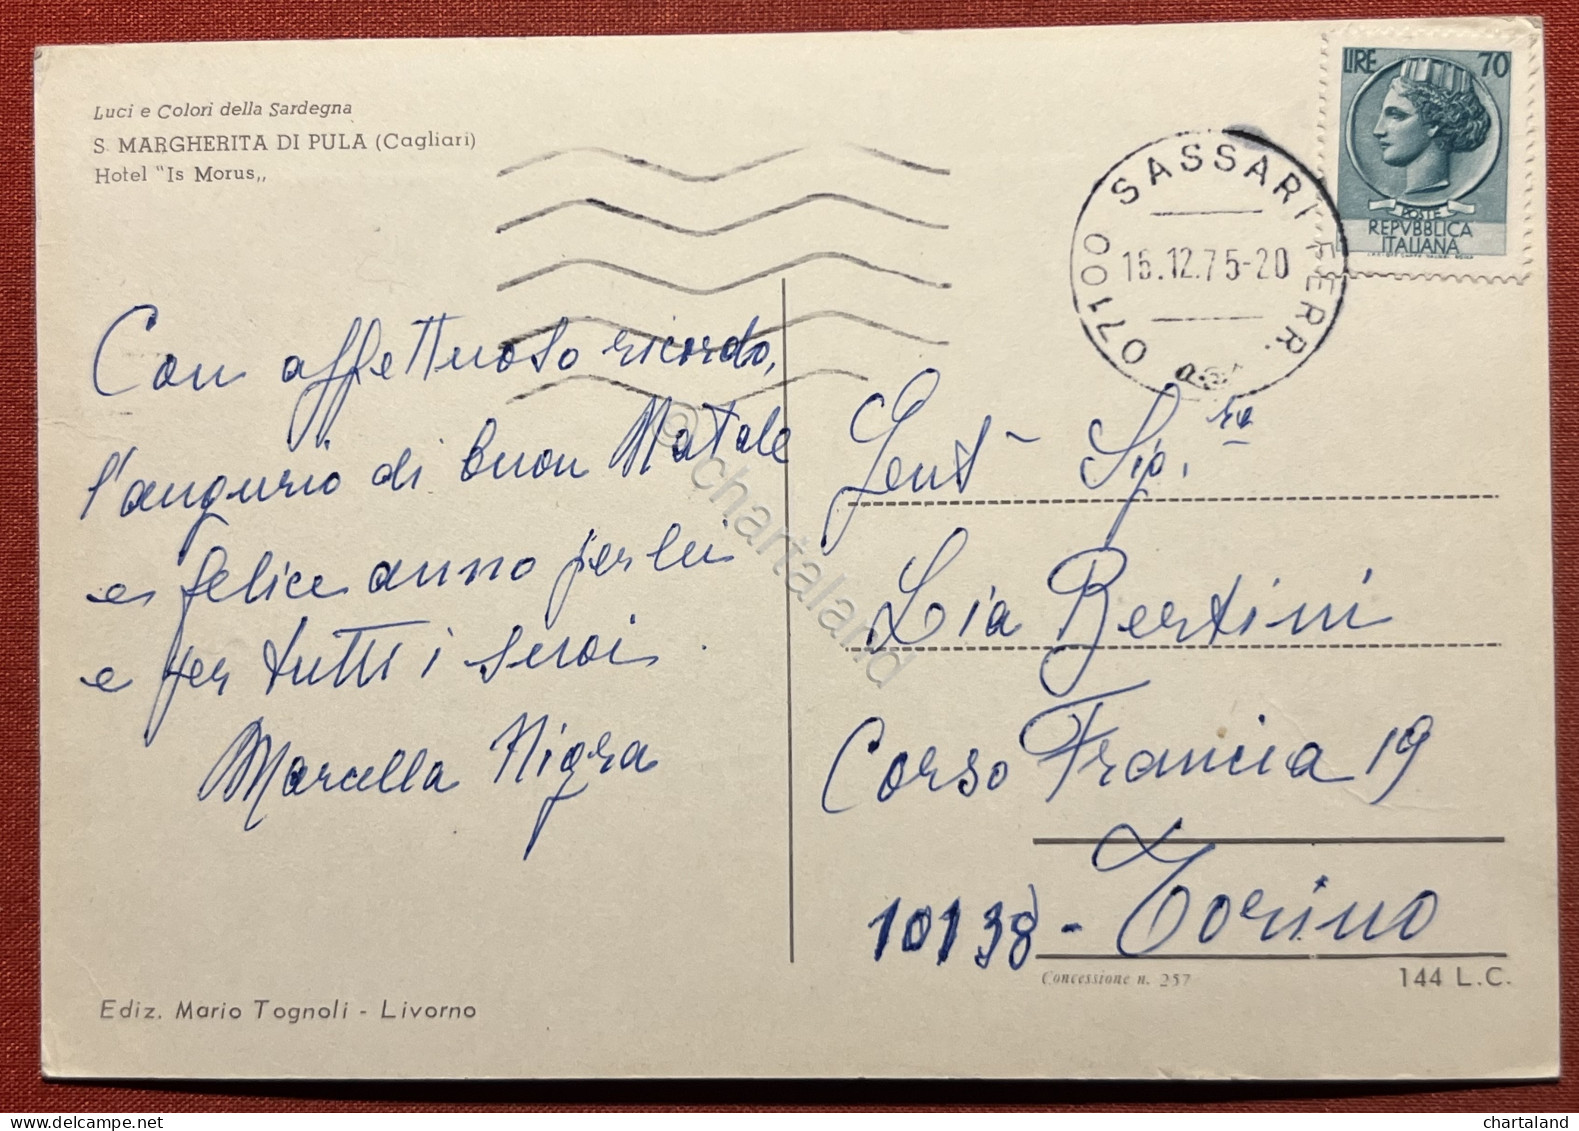 Luci e Colori della Sardegna
S. MARGHERITA DI PULA (Cagliari)
Hotel "Is Morus,,
LIRE 70
POSTE
REPVBBLICA
ITALIANA
07100 SASSARI FERR.
16.12.75-20
Con affettuoso ricordo,
l'augurio di buon Natale
e felice anno per lei
e per tutti i suoi.
Marcella Nigra
Gent- Sig.ra
Lia Bertini
Corso Francia 19
10138 - Torino
Concessione n. 257
144 L.C.
Ediz. Mario Tognoli - Livorno
© chartaland
www.delcampe.net
chartaland